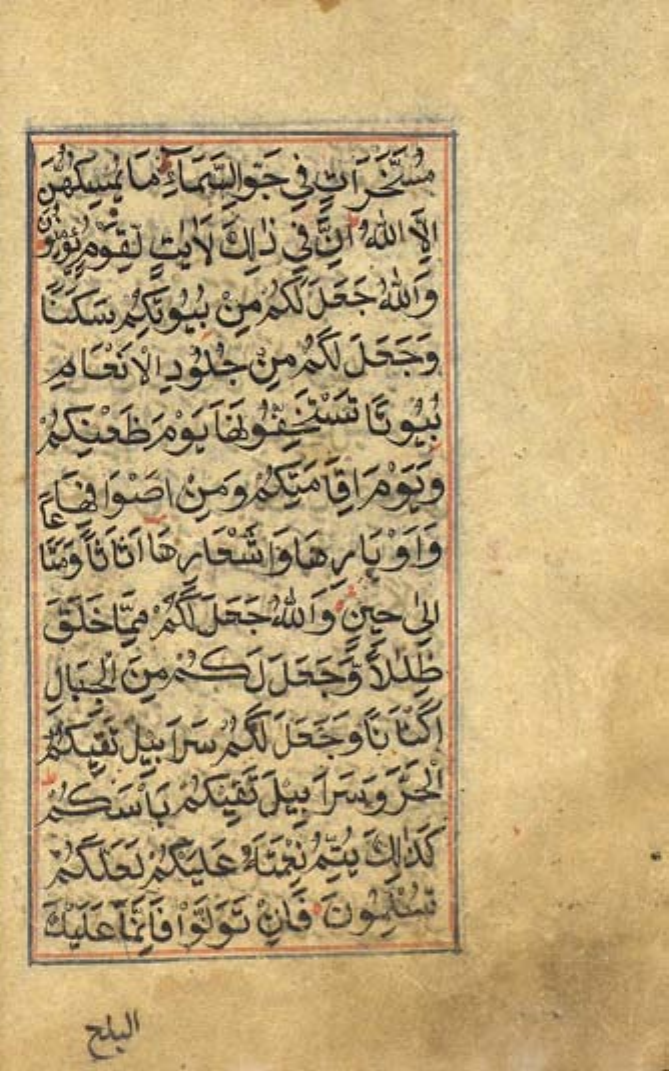 مُسَخَّرَاتٍ فِي جَوِّ السَّمَاءِ مَا يُمْسِكُهُنَّ
اِلَّا اللهُ اِنَّ فِي ذٰلِكَ لَاٰيٰتٍ لِقَوْمٍ يُؤْمِنُونَ
وَاللهُ جَعَلَ لَكُمْ مِنْ بُيُوتِكُمْ سَكَنًا
وَجَعَلَ لَكُمْ مِنْ جُلُودِ الْاَنْعَامِ
بُيُوتًا تَسْتَخِفُّونَهَا يَوْمَ ظَعْنِكُمْ
وَيَوْمَ اِقَامَتِكُمْ وَمِنْ اَصْوَافِهَا
وَاَوْبَارِهَا وَاَشْعَارِهَا اَثَاثًا وَمَتَاعًا
اِلٰى حِينٍ وَاللهُ جَعَلَ لَكُمْ مِمَّا خَلَقَ
ظِلَالًا وَجَعَلَ لَكُمْ مِنَ الْجِبَالِ
اَكْنَانًا وَجَعَلَ لَكُمْ سَرَابِيلَ تَقِيكُمُ
الْحَرَّ وَسَرَابِيلَ تَقِيكُمْ بَاْسَكُمْ
كَذٰلِكَ يُتِمُّ نِعْمَتَهُ عَلَيْكُمْ لَعَلَّكُمْ
تُسْلِمُونَ فَاِنْ تَوَلَّوْا فَاِنَّمَا عَلَيْكَ
البلح